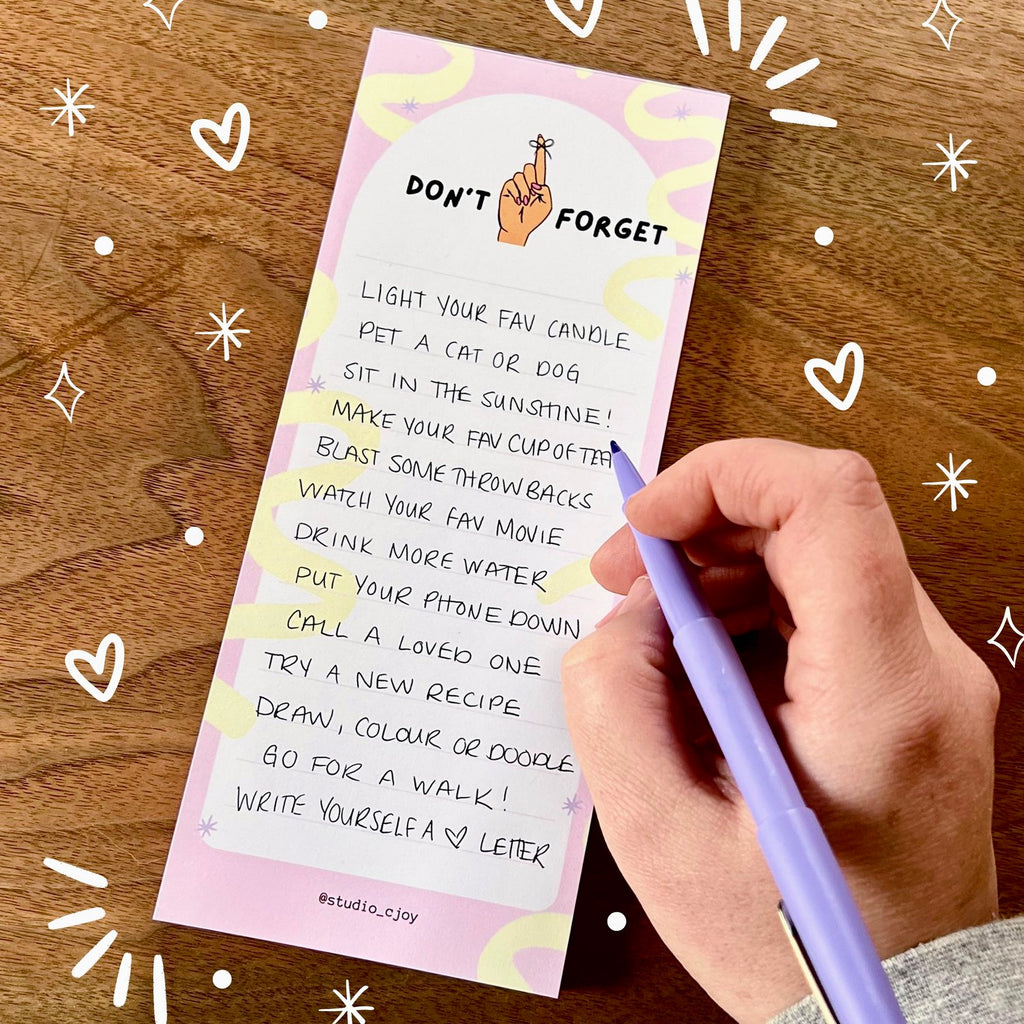 DON'T FORGET
LIGHT YOUR FAV CANDLE
PET A CAT OR DOG
SIT IN THE SUNSHINE!
MAKE YOUR FAV CUP OF TEA
BLAST SOME THROWBACKS
WATCH YOUR FAV MOVIE
DRINK MORE WATER
PUT YOUR PHONE DOWN
CALL A LOVED ONE
TRY A NEW RECIPE
DRAW, COLOUR OR DOODLE
GO FOR A WALK!
WRITE YOURSELF A ♡ LETTER
@studio_cjoy